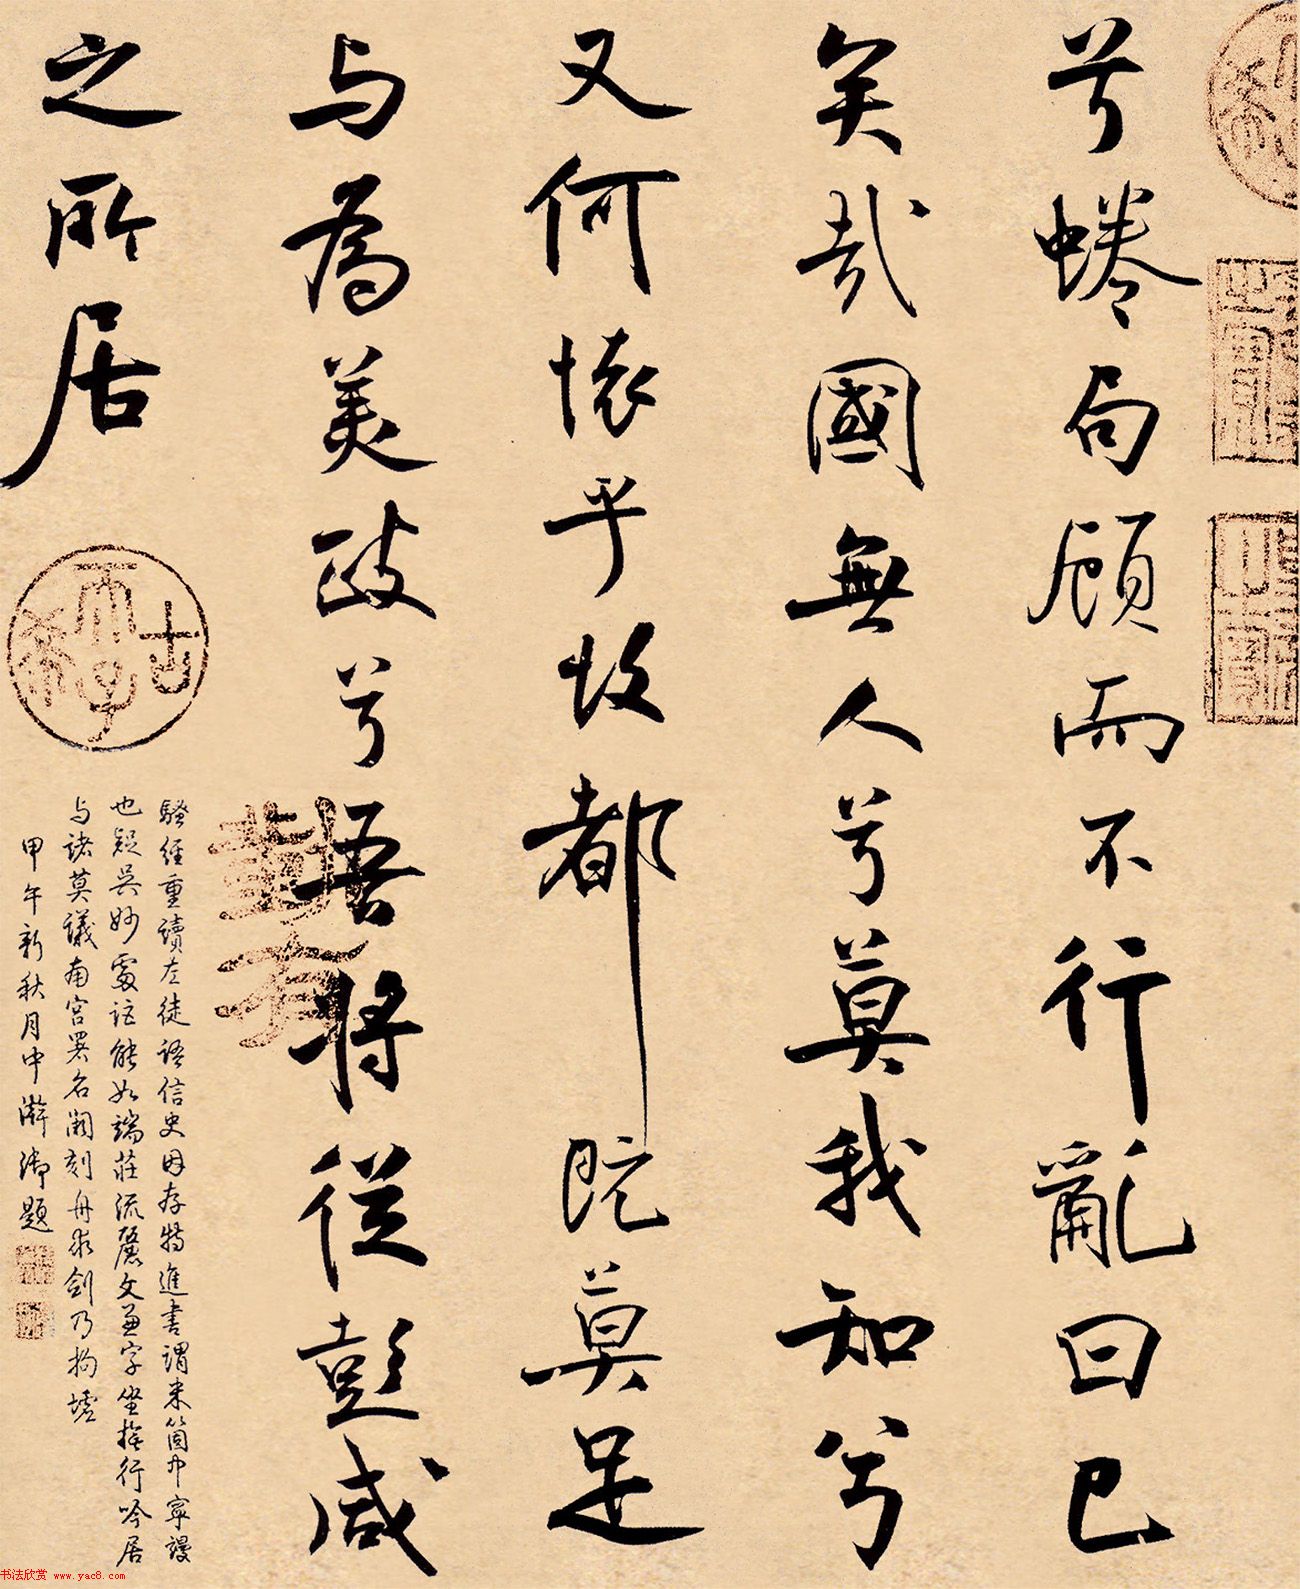 兮蜷句顧而不行亂曰已
矣哉國無人兮莫我知兮
又何懷乎故都既莫足
与為美政兮吾將從彭咸
之所居
古希天子
騷經重讀左徒語信史因存特進書謂米箇中寧謾
也疑吳妙處詎能如端莊流麗文兼字坐行吟居
与諸莫議南宮署名闕刻舟求劍乃拘墟
甲午新秋月中澣御題
书法欣赏 www.yac8.com